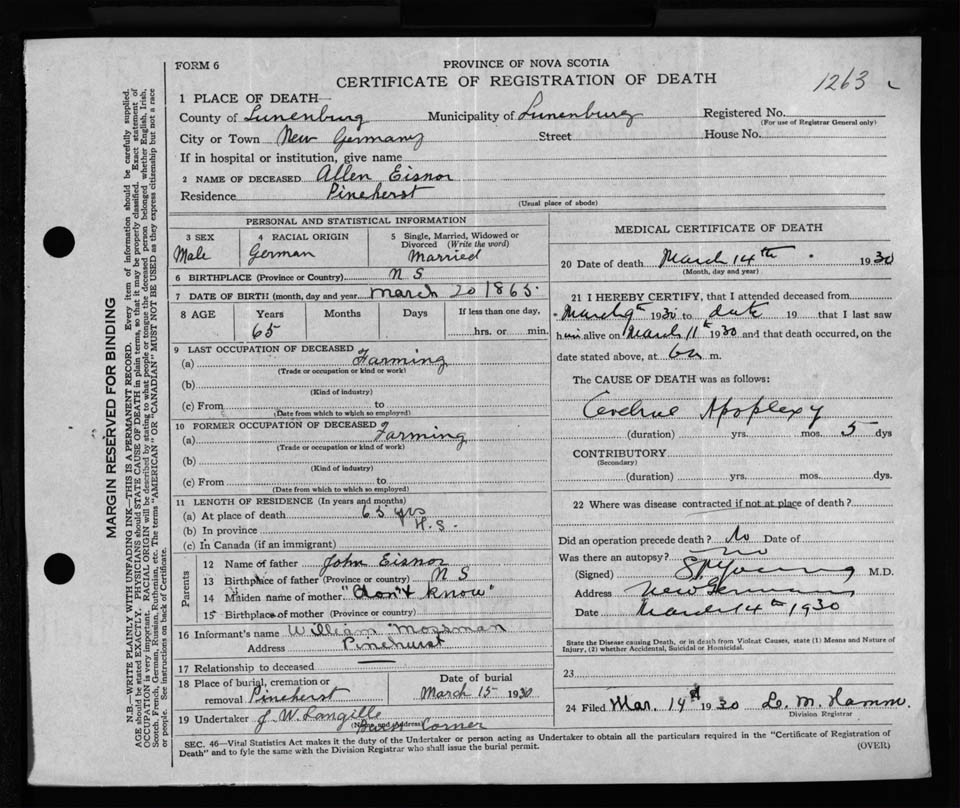 FORM 6
PROVINCE OF NOVA SCOTIA
CERTIFICATE OF REGISTRATION OF DEATH
1263
1 PLACE OF DEATH—
County of Lunenburg Municipality of Lunenburg Registered No.
(For use of Registrar General only)
City or Town New Germany Street House No.
If in hospital or institution, give name
2 NAME OF DECEASED Allen Eisnor
Residence Pineherst
(Usual place of abode)
PERSONAL AND STATISTICAL INFORMATION
3 SEX
Male
4 RACIAL ORIGIN
German
5 Single, Married, Widowed or
Divorced (Write the word)
Married
6 BIRTHPLACE (Province or Country) N S
7 DATE OF BIRTH (month, day and year March 20 1865
8 AGE Years Months Days If less than one day,
65 hrs. or min.
9 LAST OCCUPATION OF DECEASED
(a) Farming
(Trade or occupation or kind or work)
(b)
(Kind of industry)
(c) From to
(Date from which to which so employed)
10 FORMER OCCUPATION OF DECEASED
(a) Farming
(Trade or occupation or kind of work)
(b)
(Kind of industry)
(c) From to
(Date from which to which so employed)
11 LENGTH OF RESIDENCE (In years and months)
(a) At place of death 65 yrs
(b) In province
(c) In Canada (if an immigrant)
Parents
12 Name of father John Eisnor
13 Birthplace of father (Province or country) N S
14 Maiden name of mother "Don't know"
15 Birthplace of mother (Province or country)
16 Informant's name William Mossman
Address Pinehurst
17 Relationship to deceased
18 Place of burial, cremation or
removal Pineherst
Date of burial
March 15 1930
19 Undertaker J. W. Langille
(Name and address) Corner
MEDICAL CERTIFICATE OF DEATH
20 Date of death March 14th 1930
(Month, day and year)
21 I HEREBY CERTIFY, that I attended deceased from
March 9th 1930 to date 19 that I last saw
him alive on March 11th 1930 and that death occurred, on the
date stated above, at m.
The CAUSE OF DEATH was as follows:
Apoplexy
(duration) yrs. mos. 5 dys
CONTRIBUTORY
(Secondary)
(duration) yrs. mos. dys.
22 Where was disease contracted if not at place of death?
Did an operation precede death? No Date of
Was there an autopsy? no
(Signed) Young M.D.
Address New Germany
Date March 14th 1930
State the Disease causing Death, or in death from Violent Causes, state (1) Means and Nature of
Injury, (2) whether Accidental, Suicidal or Homicidal.
23
24 Filed Mar. 14th 1930 L. M. Hamm.
Division Registrar
SEC. 46—Vital Statistics Act makes it the duty of the Undertaker or person acting as Undertaker to obtain all the particulars required in the "Certificate of Registration of
Death" and to fyle the same with the Division Registrar who shall issue the burial permit.
(OVER)
MARGIN RESERVED FOR BINDING
N.B.—WRITE PLAINLY WITH UNFADING INK—THIS IS A PERMANENT RECORD. Every item of information should be carefully supplied.
AGE should be stated EXACTLY. PHYSICIANS should STATE CAUSE OF DEATH in plain terms, so that it may be properly classified. Exact statement of
OCCUPATION is very important. RACIAL ORIGIN will be described by stating to what people or tongue the deceased person belonged whether English, Irish,
Scotch, French, German, Russian, Ruthenian, etc. The terms "AMERICAN" OR "CANADIAN" MUST NOT BE USED as they express citizenship but not a race
or people. See instructions on back of Certificate.